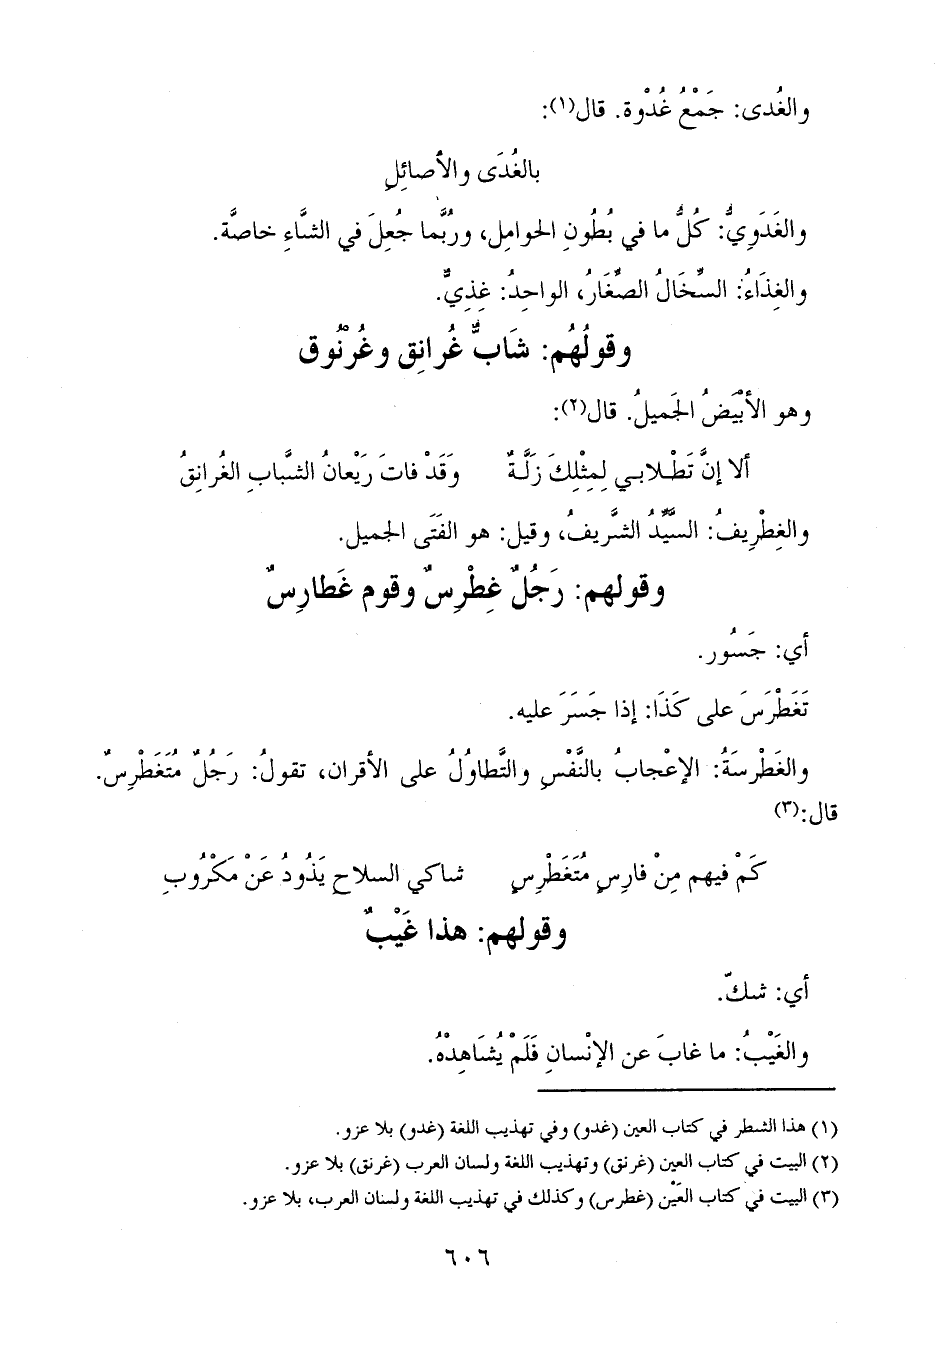 والغُدى: جَمْعُ غُدْوة. قال(١):
بالغُدَى والأصائلِ
والغَدَوِيُّ: كُلُّ ما في بُطُونِ الحوامل، ورُبَّما جُعِلَ في الشَّاءِ خاصَّة.
والغِذَاءُ: السِّخَالُ الصِّغَارُ، الواحِدُ: غِذِيٌّ.
وقولُهُم: شَابٌّ غُرانِق وغُرْنُوق
وهو الأبْيَضُ الجَميلُ. قال(٢):
ألا إنَّ تَطْلابي لِمِثْلِكَ زَلَّةٌ وَقَدْ فاتَ رَيْعانُ الشَّبابِ الغُرانِقُ
والغِطْرِيفُ: السَّيِّدُ الشَّريفُ، وقيل: هو الفَتَى الجميل.
وقولهم: رَجُلٌ غِطْرِسٌ وقوم غَطارِسٌ
أي: جَسُور.
تَغَطْرَسَ على كَذَا: إذا جَسَرَ عليه.
والغَطْرسَةُ: الإعْجابُ بالنَّفْسِ والتَّطاوُلُ على الأقران، تقولُ: رَجُلٌ مُتَغَطْرِسٌ.
قال:(٣)
كَمْ فيهم مِنْ فارِسٍ مُتَغَطْرِسٍ شاكي السلاحِ يَذُودُ عَنْ مَكْرُوبِ
وقولهم: هذا غَيْبٌ
أي: شكّ.
والغَيْبُ: ما غابَ عن الإنْسانِ فَلَمْ يُشَاهِدْهُ.
(١) هذا الشطر في كتاب العين (غدو) وفي تهذيب اللغة (غدو) بلا عزو.
(٢) البيت في كتاب العين (غرنق) وتهذيب اللغة ولسان العرب (غرنق) بلا عزو.
(٣) البيت في كتاب العَيْن (غطرس) وكذلك في تهذيب اللغة ولسان العرب، بلا عزو.
٦٠٦